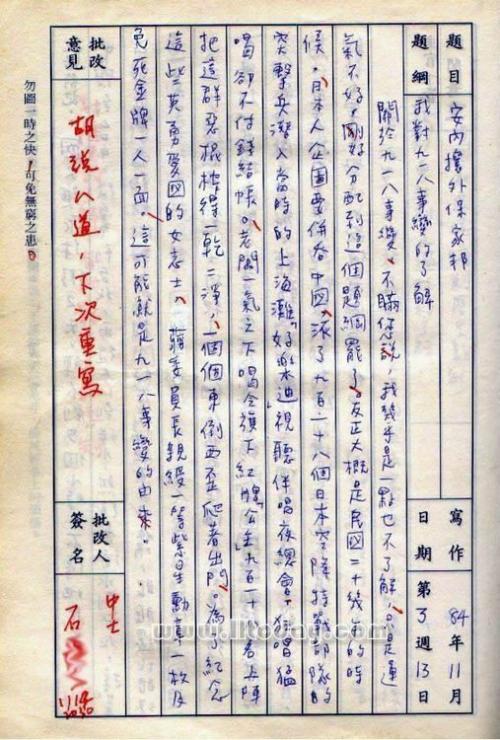 題目
安內攘外保家邦
題綱
我對九一八事變的了解
寫作日期
84年11月
第3週13日
關於九一八事變、不瞞您說，我幾乎是一點也不了解，只是運
氣不好，剛好分配到這個題綱罷了。反正大概是民國二十幾年的時
候，日本人企圖要併吞中國，派了九百一十八個日本空降特戰部隊的
突擊兵潛入當時的上海灘「好樂迪視聽伴唱夜總會」狂唱猛
喝卻不付錢結帳。老闆一氣之下喝令旗下紅牌公主九百一十八名上陣
把這群惡棍枕得一乾二淨，一個個東倒西歪爬著出門。為了紀念
這些英勇愛國的女志士、蔣委員長親綬一等紫星勳章一枚及
免死金牌一人一面，這可能就是九一八事變的由來。
批改意見
胡說八道，下次重寫
批改人簽名
中士
石
11/14
2020
勿圖一時之快，可免無窮之患。
www.lltoday.com